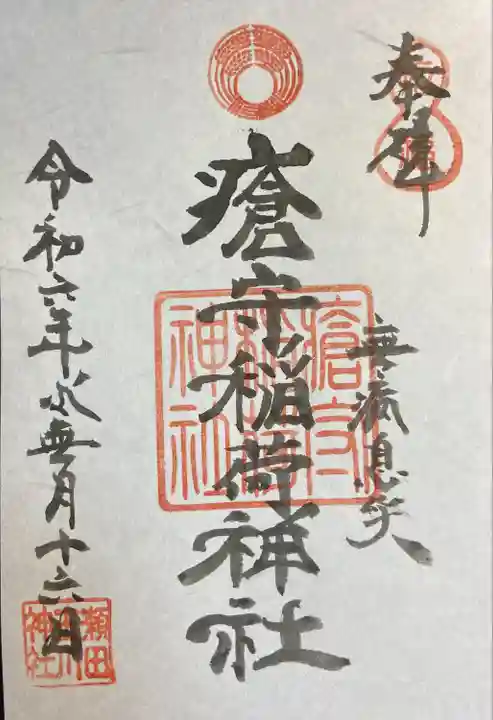 奉拝
無病息災
瘡守稲荷神社
瘡守稲荷神社
令和六年水無月十六日
瀬田玉川神社